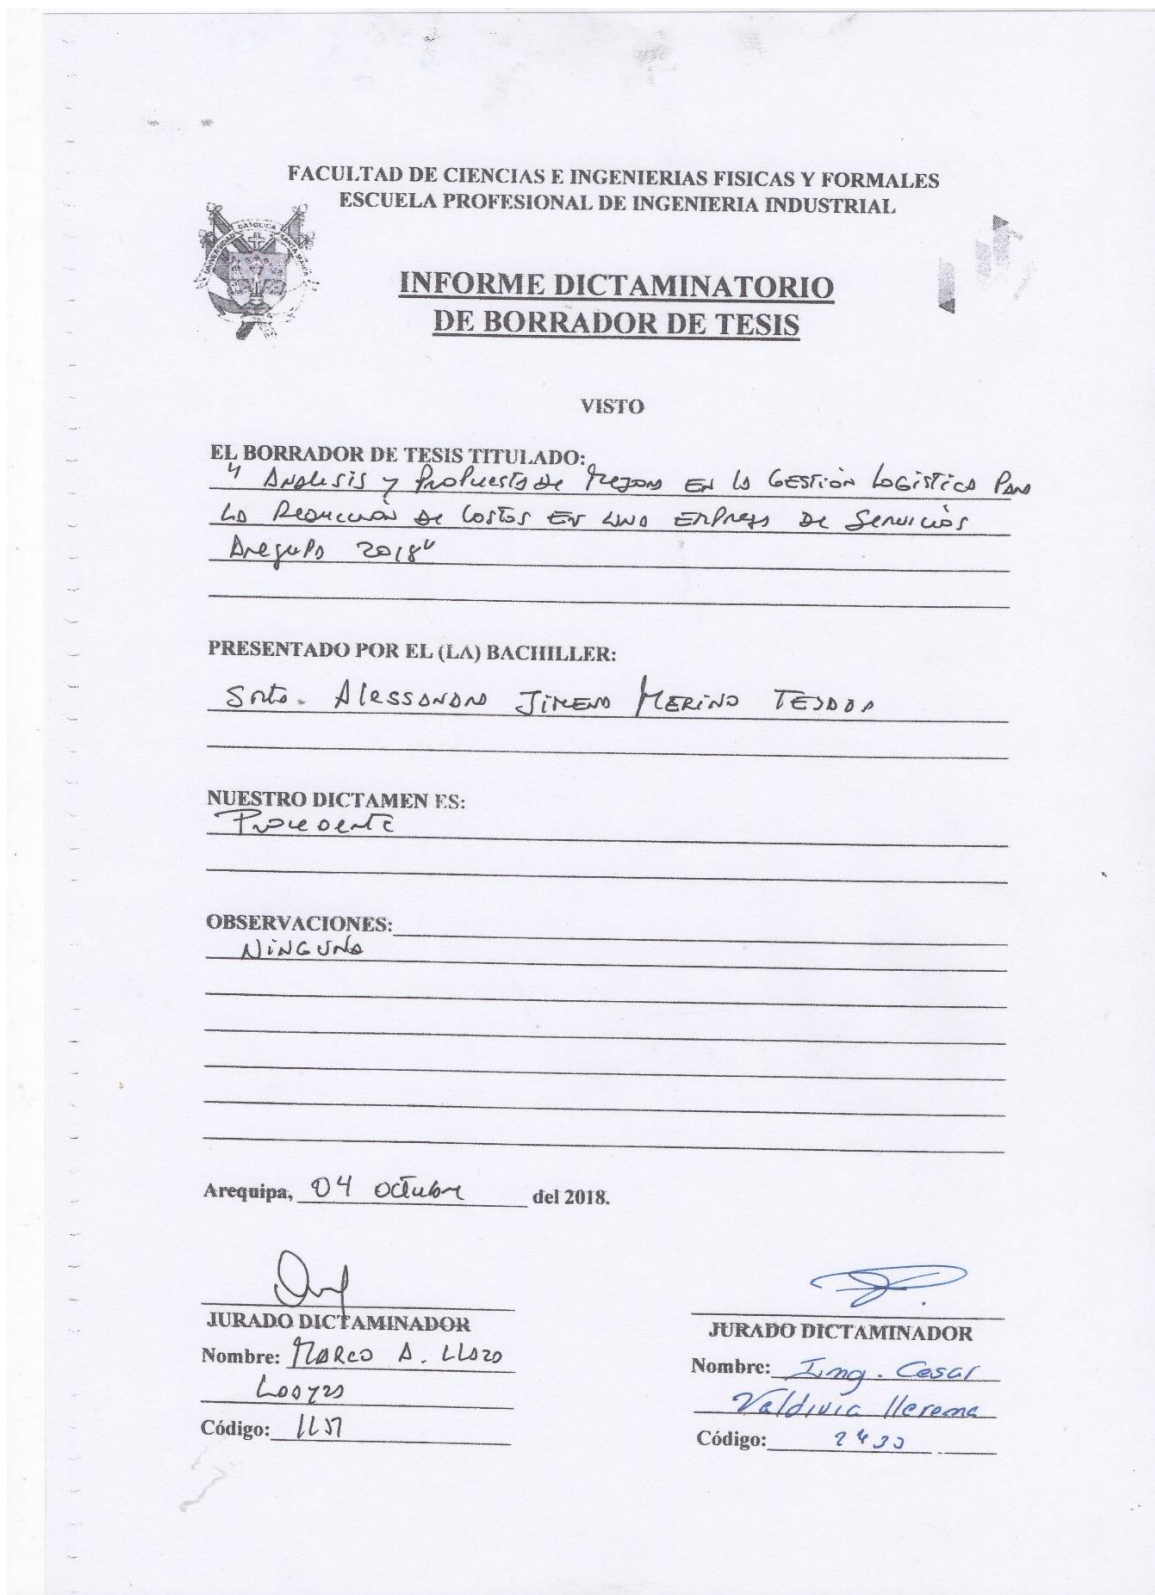 FACULTAD DE CIENCIAS E INGENIERIAS FISICAS Y FORMALES
ESCUELA PROFESIONAL DE INGENIERIA INDUSTRIAL
INFORME DICTAMINATORIO
DE BORRADOR DE TESIS
VISTO
EL BORRADOR DE TESIS TITULADO:
" Analisis y Propuesta de Mejora en la Gestión Logística Para
la Reducción de Costos en una Empresa de Servicios
Arequipa 2018"
PRESENTADO POR EL (LA) BACHILLER:
Srta. Alessandra Jimena Merino Tejada
NUESTRO DICTAMEN ES:
Procedente
OBSERVACIONES:
Ninguna
Arequipa, 04 octubre del 2018.
JURADO DICTAMINADOR
Nombre: Marco A. Llaza
Loayza
Código:
JURADO DICTAMINADOR
Nombre: Ing. Cesar
Valdivia Llerena
Código: 2433